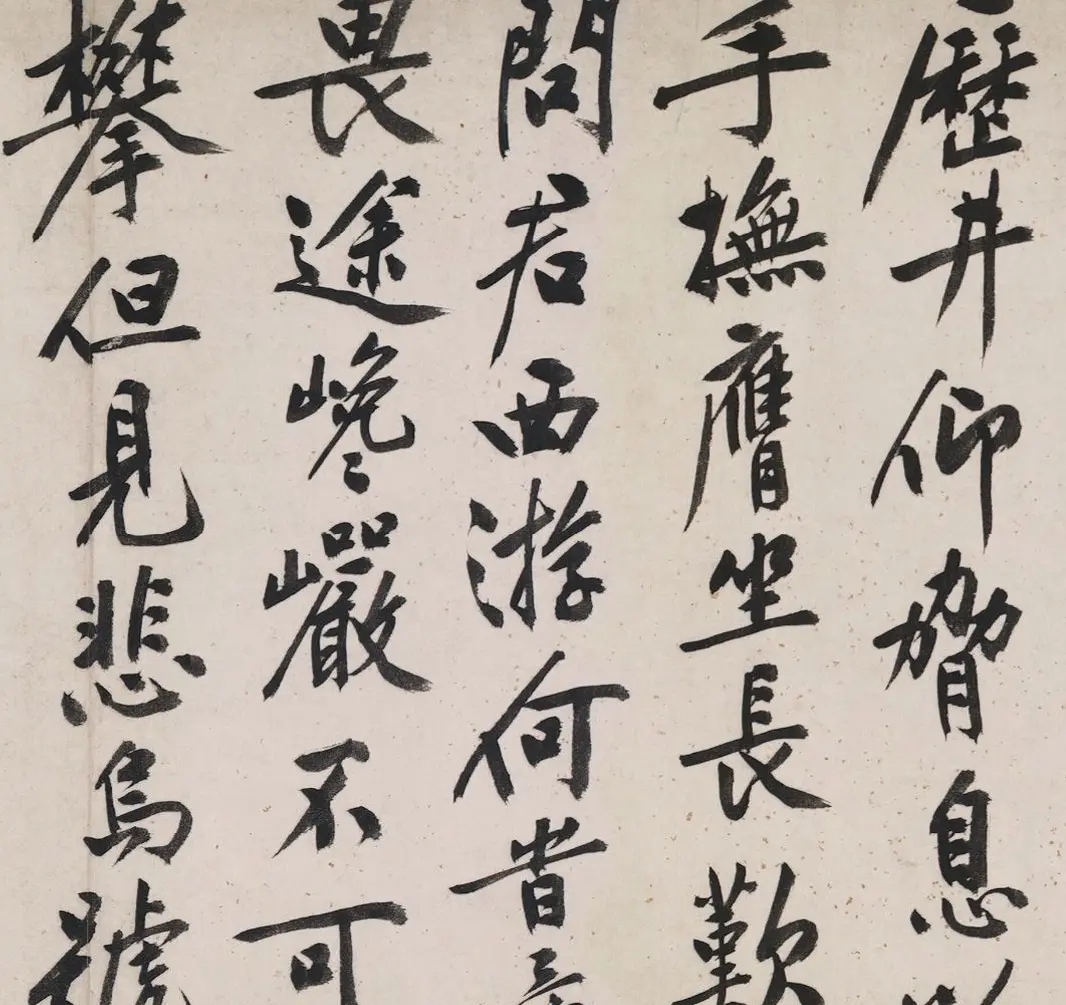 歷井仰脅息
手撫膺坐長歎
問君西游何旹
畏途巉巖不可
攀但見悲鳥號